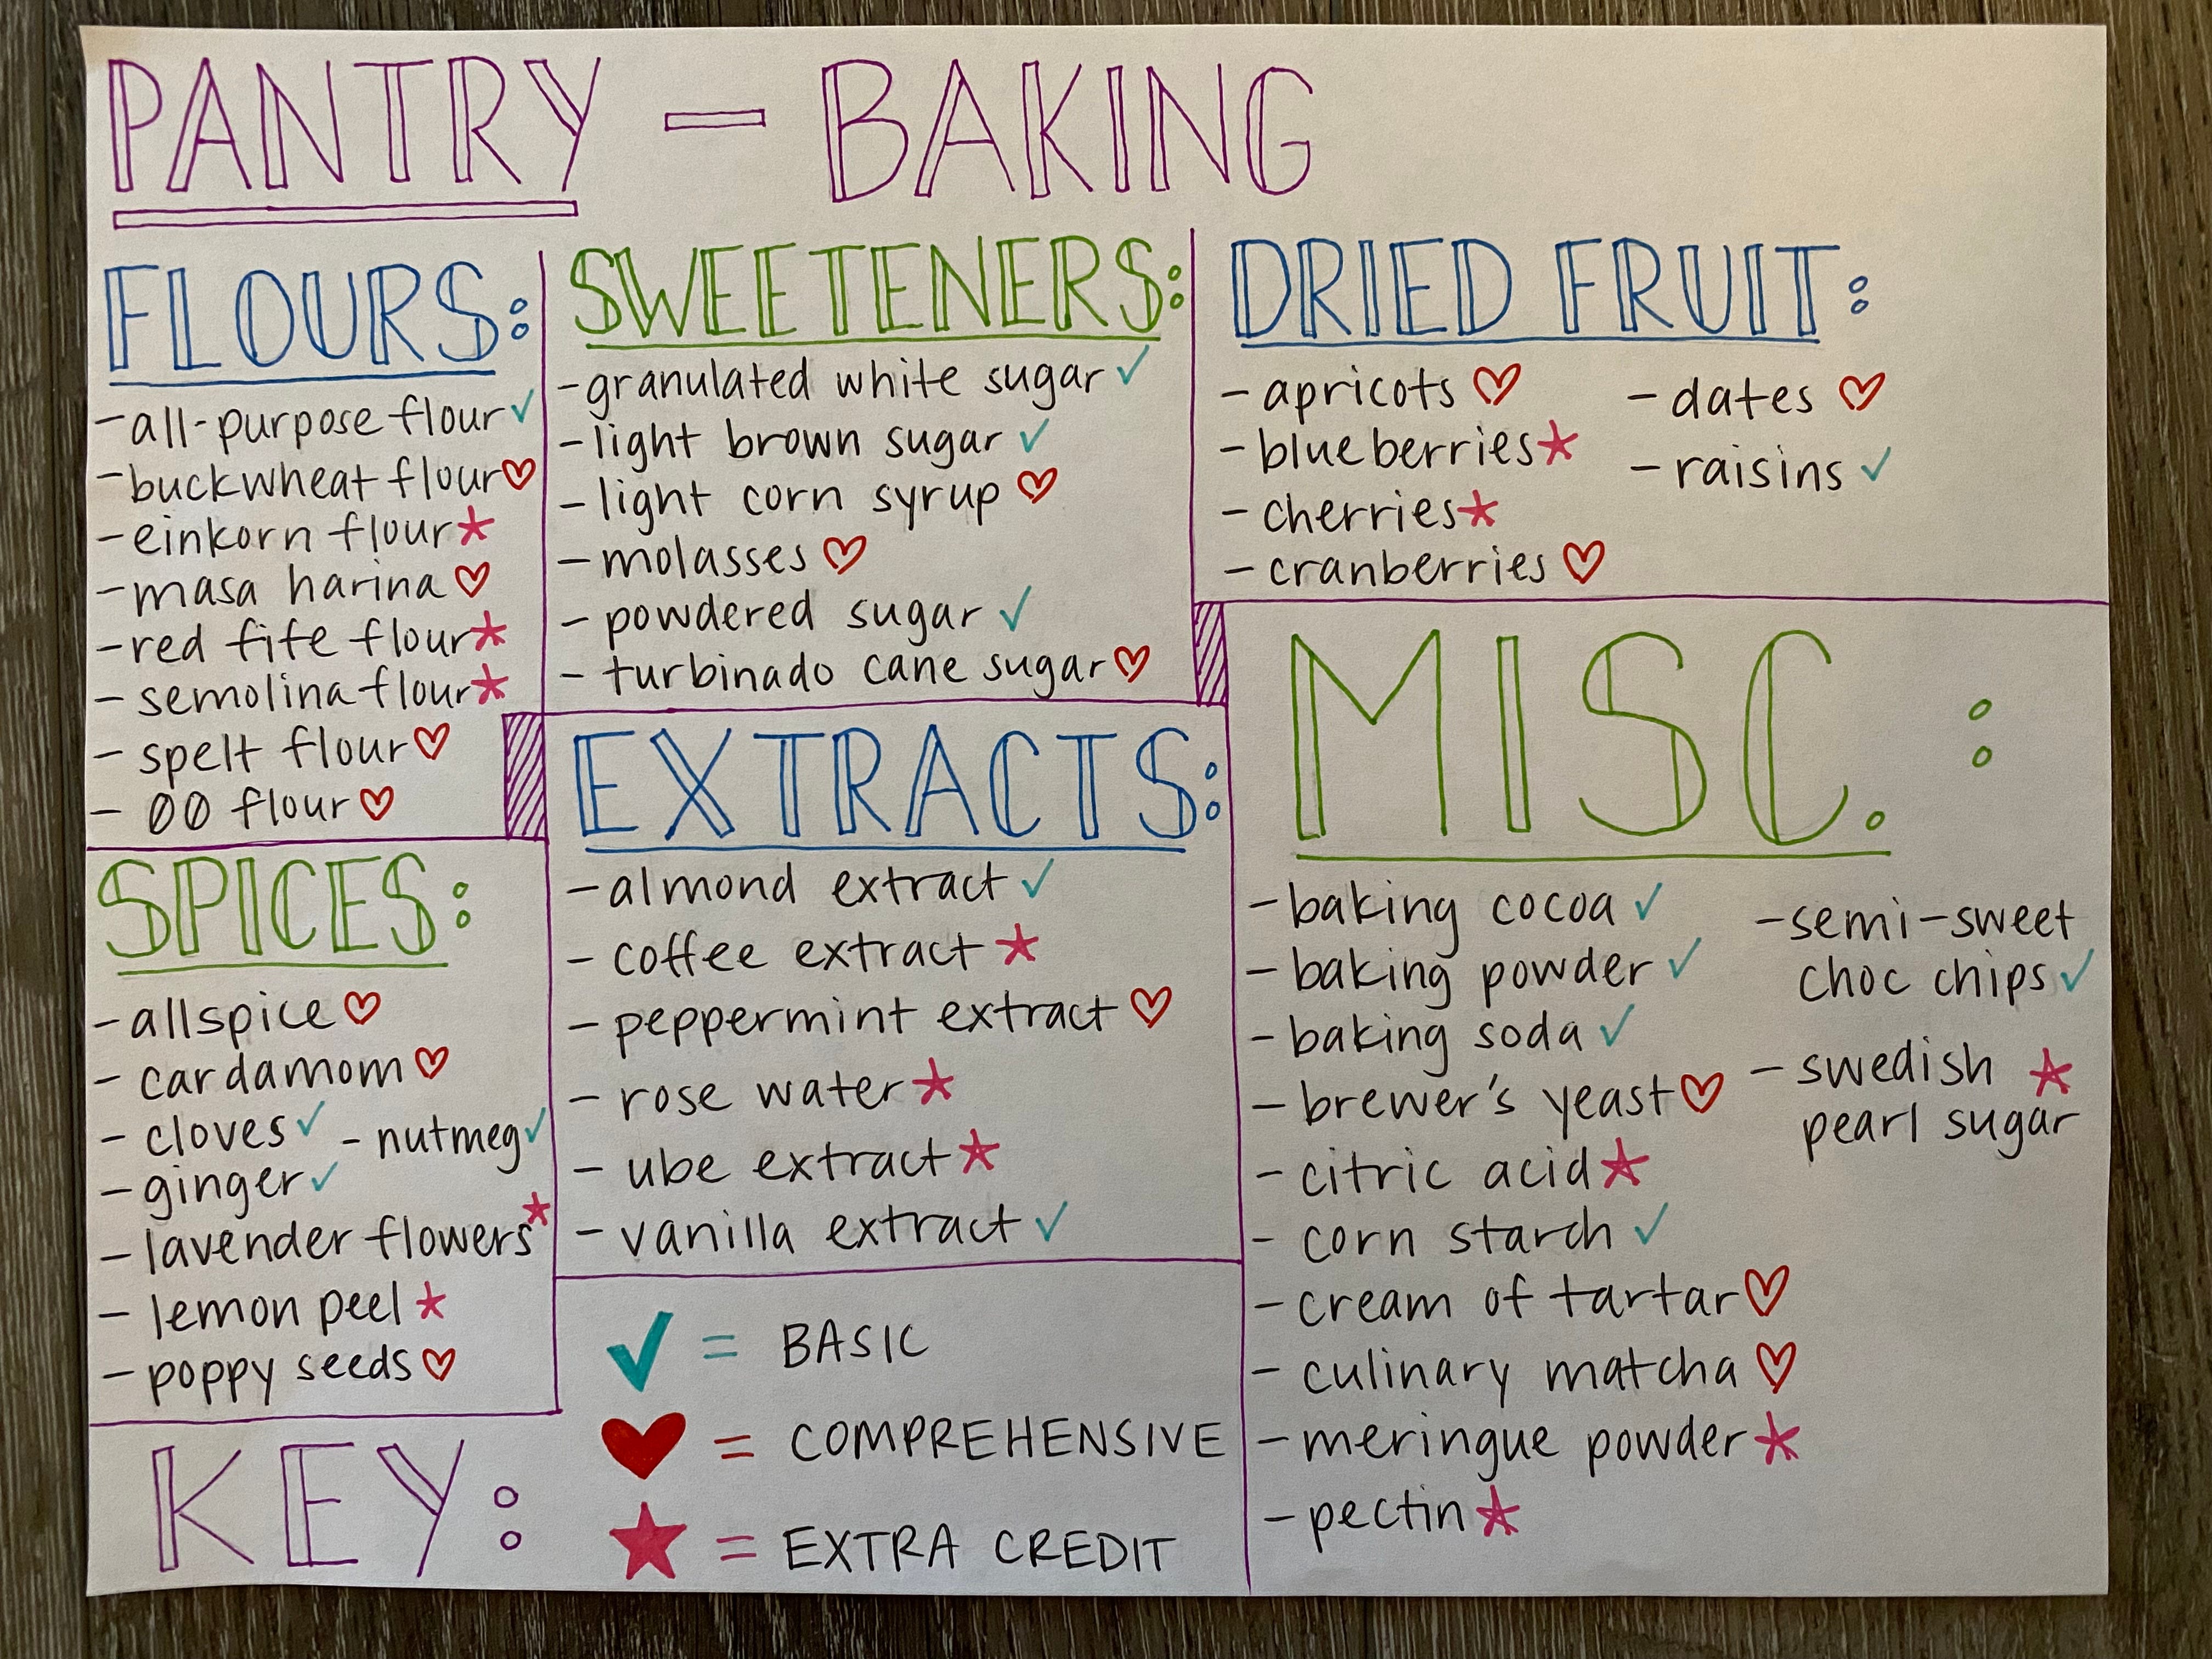 PANTRY - BAKING
FLOURS:
- all-purpose flour ✓
- buckwheat flour ♡
- einkorn flour ★
- masa harina ♡
- red fife flour ★
- semolina flour ★
- spelt flour ♡
- 00 flour ♡
SPICES:
- allspice ♡
- cardamom ♡
- cloves ✓ - nutmeg ✓
- ginger ✓
- lavender flowers ★
- lemon peel ★
- poppy seeds ♡
SWEETENERS:
- granulated white sugar ✓
- light brown sugar ✓
- light corn syrup ♡
- molasses ♡
- powdered sugar ✓
- turbinado cane sugar ♡
EXTRACTS:
- almond extract ✓
- coffee extract ★
- peppermint extract ♡
- rose water ★
- ube extract ★
- vanilla extract ✓
DRIED FRUIT:
- apricots ♡
- blueberries ★
- cherries ★
- cranberries ♡
- dates ♡
- raisins ✓
MISC. :
- baking cocoa ✓
- baking powder ✓
- baking soda ✓
- brewer's yeast ♡
- citric acid ★
- corn starch ✓
- cream of tartar ♡
- culinary matcha ♡
- meringue powder ★
- pectin ★
- semi-sweet
choc chips ✓
- swedish ★
pearl sugar
KEY:
✓ = BASIC
♥ = COMPREHENSIVE
★ = EXTRA CREDIT